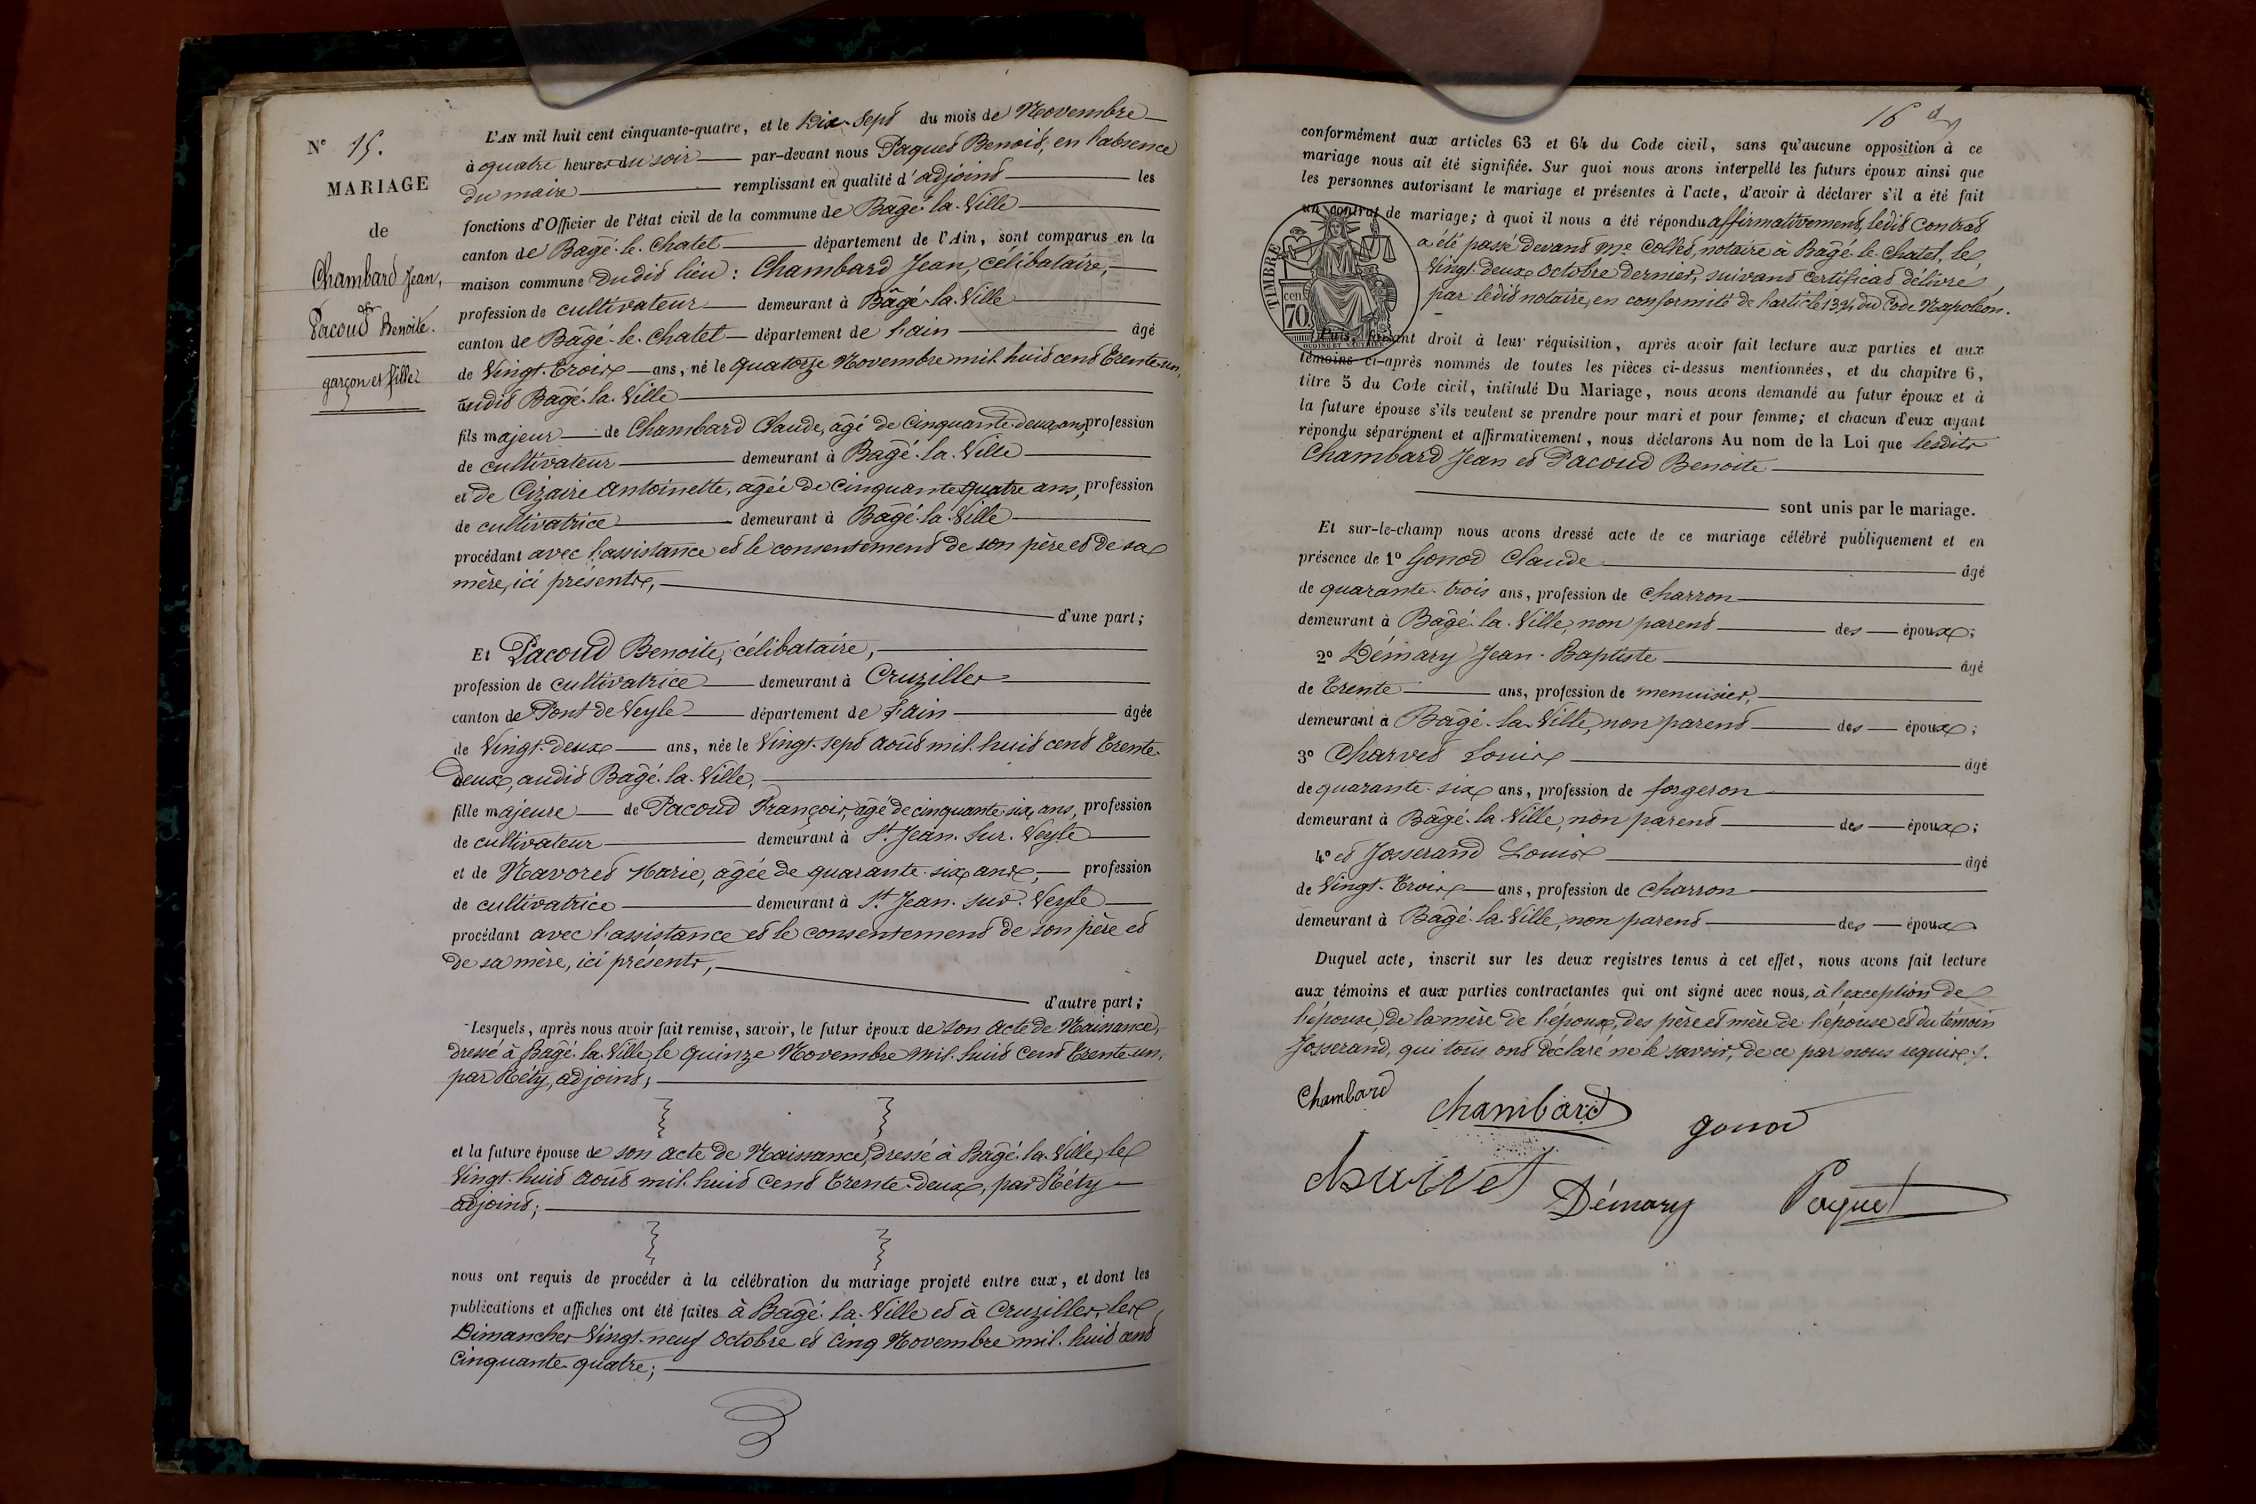 N° 15.
MARIAGE
de
Chambard Jean,
et
Pacoud Benoite.
garçon et fille
L'AN mil huit cent cinquante-quatre, et le Dix-Sept du mois de Novembre
à quatre heures du soir par-devant nous Paquet Benoit, en l'absence
du maire remplissant en qualité d'adjoint les
fonctions d'Officier de l'état civil de la commune de Bâgé-la-Ville
canton de Bâgé-le-Chatel département de l'Ain, sont comparus en la
maison commune dudit lieu : Chambard Jean, célibataire,
profession de cultivateur demeurant à Bâgé-la-Ville
canton de Bâgé-le-Chatel département de l'ain âgé
de Vingt-Trois ans, né le quatorze Novembre mil huit cent Trente-un,
audit Bâgé-la-Ville
fils majeur de Chambard Claude, âgé de cinquante-deux ans, profession
de cultivateur demeurant à Bâgé-la-Ville
et de Cizaire Antoinette, agée de cinquante quatre ans, profession
de cultivatrice demeurant à Bâgé-la-Ville
procédant avec l'assistance et le consentement de son père et de sa
mère, ici présents,
d'une part ;
Et Pacoud Benoite, célibataire,
profession de cultivatrice demeurant à Cruziller
canton de Pont de Veyle département de l'ain âgée
de Vingt-deux ans, née le Vingt-sept août mil-huit cent Trente-
deux, audit Bâgé-la-Ville,
fille majeure de Pacoud François, âgé de cinquante-six ans, profession
de cultivateur demeurant à St Jean-sur-Veyle
et de Navoret Marie, âgée de quarante-six ans, profession
de cultivatrice demeurant à St Jean-sur-Veyle
procédant avec l'assistance et le consentement de son père et
de sa mère, ici présents,
d'autre part ;
Lesquels, après nous avoir fait remise, savoir, le futur époux de son acte de Naissance,
dressé à Bâgé-la-Ville, le quinze Novembre mil-huit cent Trente-un,
par Réty, adjoint ;
et la future épouse de son acte de Naissance, dressé à Bâgé-la-Ville, le
Vingt-huit août mil-huit cent Trente-deux, par Réty
adjoint ;
nous ont requis de procéder à la célébration du mariage projeté entre eux, et dont les
publications et affiches ont été faites à Bâgé-la-Ville et à Cruziller, les
Dimanches Vingt-neuf octobre et Cinq Novembre mil-huit cent
Cinquante-quatre ;
16
conformément aux articles 63 et 64 du Code civil, sans qu'aucune opposition à ce
mariage nous ait été signifiée. Sur quoi nous avons interpellé les futurs époux ainsi que
les personnes autorisant le mariage et présentes à l'acte, d'avoir à déclarer s'il a été fait
un contrat de mariage ; à quoi il nous a été répondu affirmativement, ledit contrat
a été passé devant Me Collet, notaire à Bâgé-le-Chatel, le
Vingt-deux Octobre dernier, suivant certificat délivré
par ledit notaire, en conformité de l'article 1394 du Code Napoléon.
TIMBRE
70 cent
Puis, faisant droit à leur réquisition, après avoir fait lecture aux parties et aux
témoins ci-après nommés de toutes les pièces ci-dessus mentionnées, et du chapitre 6,
titre 5 du Code civil, intitulé Du Mariage, nous avons demandé au futur époux et à
la future épouse s'ils veulent se prendre pour mari et pour femme ; et chacun d'eux ayant
répondu séparément et affirmativement, nous déclarons Au nom de la Loi que lesdits
Chambard Jean et Pacoud Benoite
sont unis par le mariage.
Et sur-le-champ nous avons dressé acte de ce mariage célébré publiquement et en
présence de 1° Gonod Claude âgé
de quarante-trois ans, profession de charron
demeurant à Bâgé-la-Ville, non parent des époux ;
2° Démary Jean-Baptiste âgé
de Trente ans, profession de menuisier,
demeurant à Bâgé-la-Ville, non parent des époux ;
3° Charvet Louis âgé
de quarante-six ans, profession de forgeron
demeurant à Bâgé-la-Ville, non parent des époux ;
4° et Josserand Louis âgé
de Vingt-Trois ans, profession de charron
demeurant à Bâgé-la-Ville, non parent des époux
Duquel acte, inscrit sur les deux registres tenus à cet effet, nous avons fait lecture
aux témoins et aux parties contractantes qui ont signé avec nous, à l'exception de
l'épouse, de la mère de l'époux, des père et mère de l'épouse et du témoin
Josserand, qui tous ont déclaré ne le savoir, de ce par nous requis.
Chambard
Chambard
gonod
Démary
Paquet